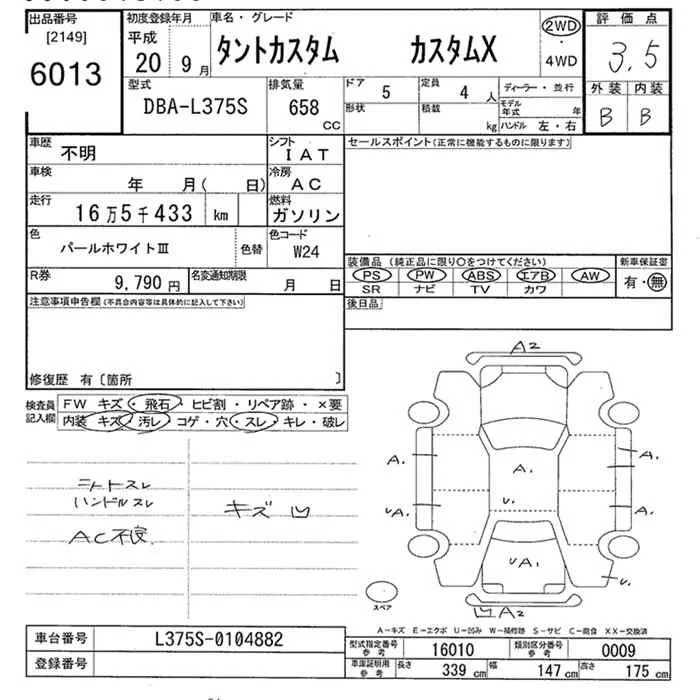 出品番号 初度登録年月 車名・グレード 2WD 評価点
[2149] 平成 ・
6013 20 9月 タントカスタム カスタムX 4WD 3.5
型式 排気量 ドア 5 定員 4人 ディーラー・並行 外装 内装
DBA-L375S 658 CC 形状 積載 kg モデル年式 年 B B
ハンドル 左・右
車歴 不明 シフト IAT セールスポイント(正常に機能するものに限ります)
車検 年 月( 日) 冷房 AC
走行 16万5千433 km 燃料 ガソリン
色 パールホワイトⅢ 色替 色コード W24
装備品 (純正品に限り〇をつけてください) 新車保証書
R券 9,790円 名変通知期限 月 日 PS PW ABS エアB AW 有・無
SR ナビ TV カワ
注意事項申告欄(不具合内容等は具体的に記入して下さい) 後日品
修復歴 有〔箇所 〕
検査員記入欄 FW キズ・飛石・ヒビ割・リペア跡・×要
内装 キズ・汚レ・コゲ・穴・スレ・キレ・破レ
シートスレ
ハンドルスレ
AC不良
キズ 凹
A2
A. A.
A.
UA. U. A.
UA.
U.
スペア
凹A2
A-キズ E-エクボ U-凹み W-補修跡 S-サビ C-腐食 XX-交換済
車台番号 L375S-0104882 型式指定番号参考 16010 類別区分番号参考 0009
登録番号 車庫証明用参考 長さ 339cm 幅 147cm 高さ 175cm